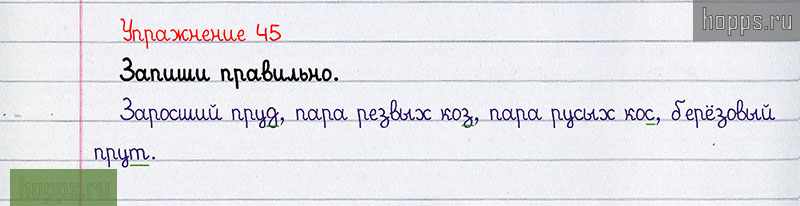 hopps.ru
Упражнение 45
Запиши правильно.
Заросший пруд, пара резвых коз, пара русых кос, берёзовый
прут.
hopps.ru